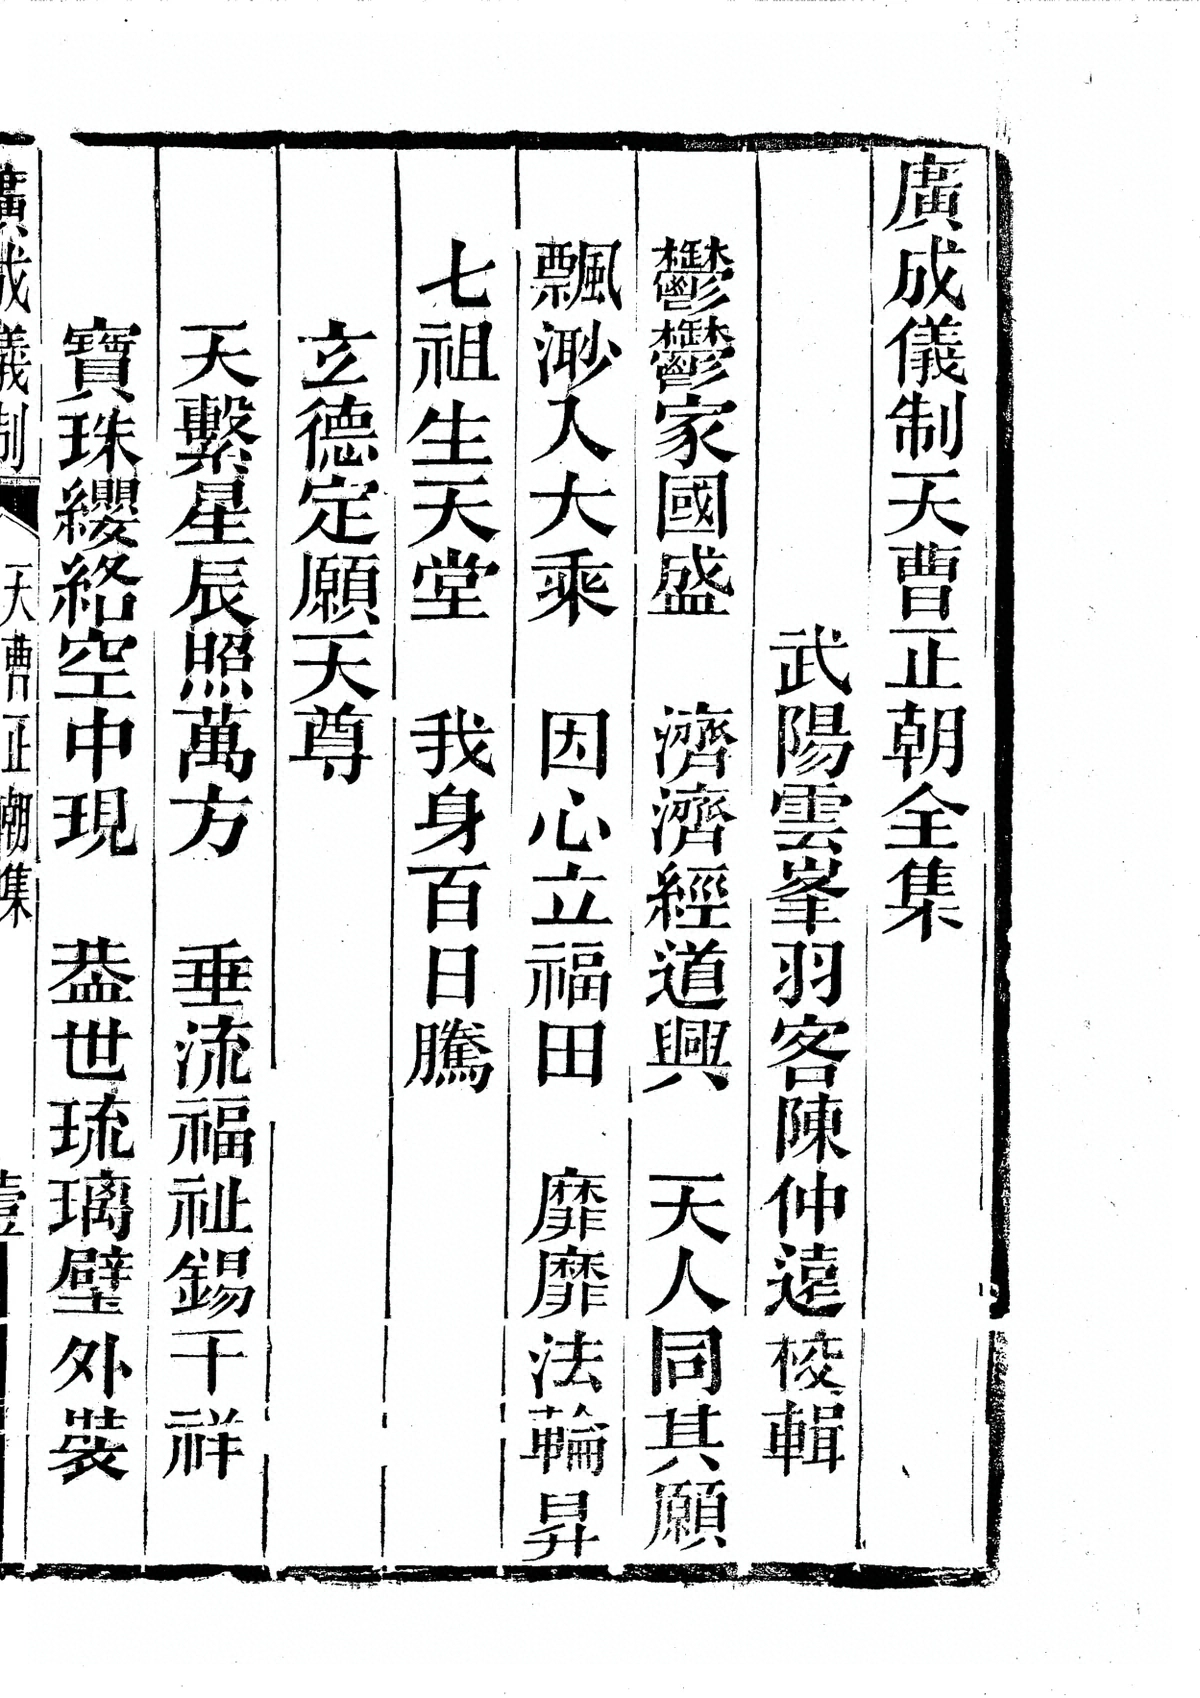 廣成儀制天曹正朝全集
武陽雲峯羽客陳仲遠校輯
鬱鬱家國盛　濟濟經道興　天人同其願
飄渺入大乘　因心立福田　靡靡法輪昇
七祖生天堂　我身百日騰
立德定願天尊
天繫星辰照萬方　垂流福祉錫千祥
寶珠纓絡空中現　葢世琉璃璧外裝
廣成儀制　天曹正朝集　壹